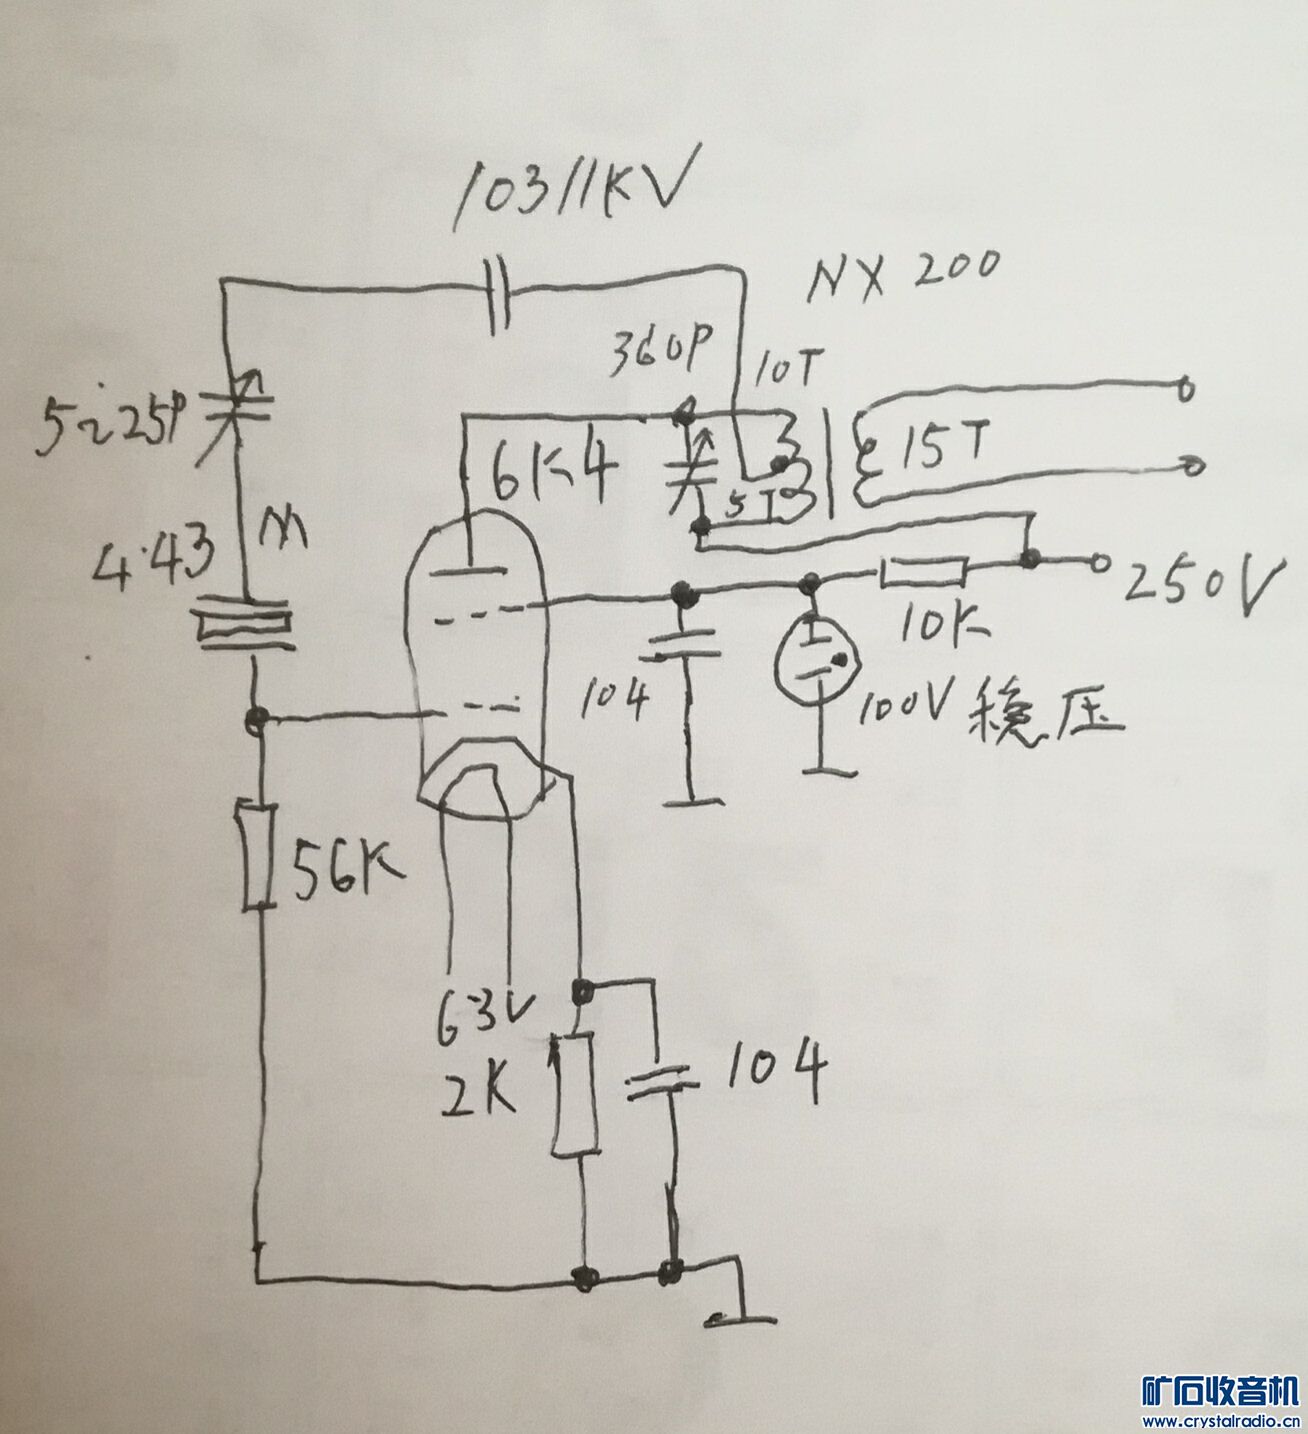 103/1KV
NX 200
360P
10T
5~25P
6K4
15T
5T
4.43 M
250V
10K
104
100V 稳压
56K
6.3V
2K
104
矿石收音机
www.crystalradio.cn